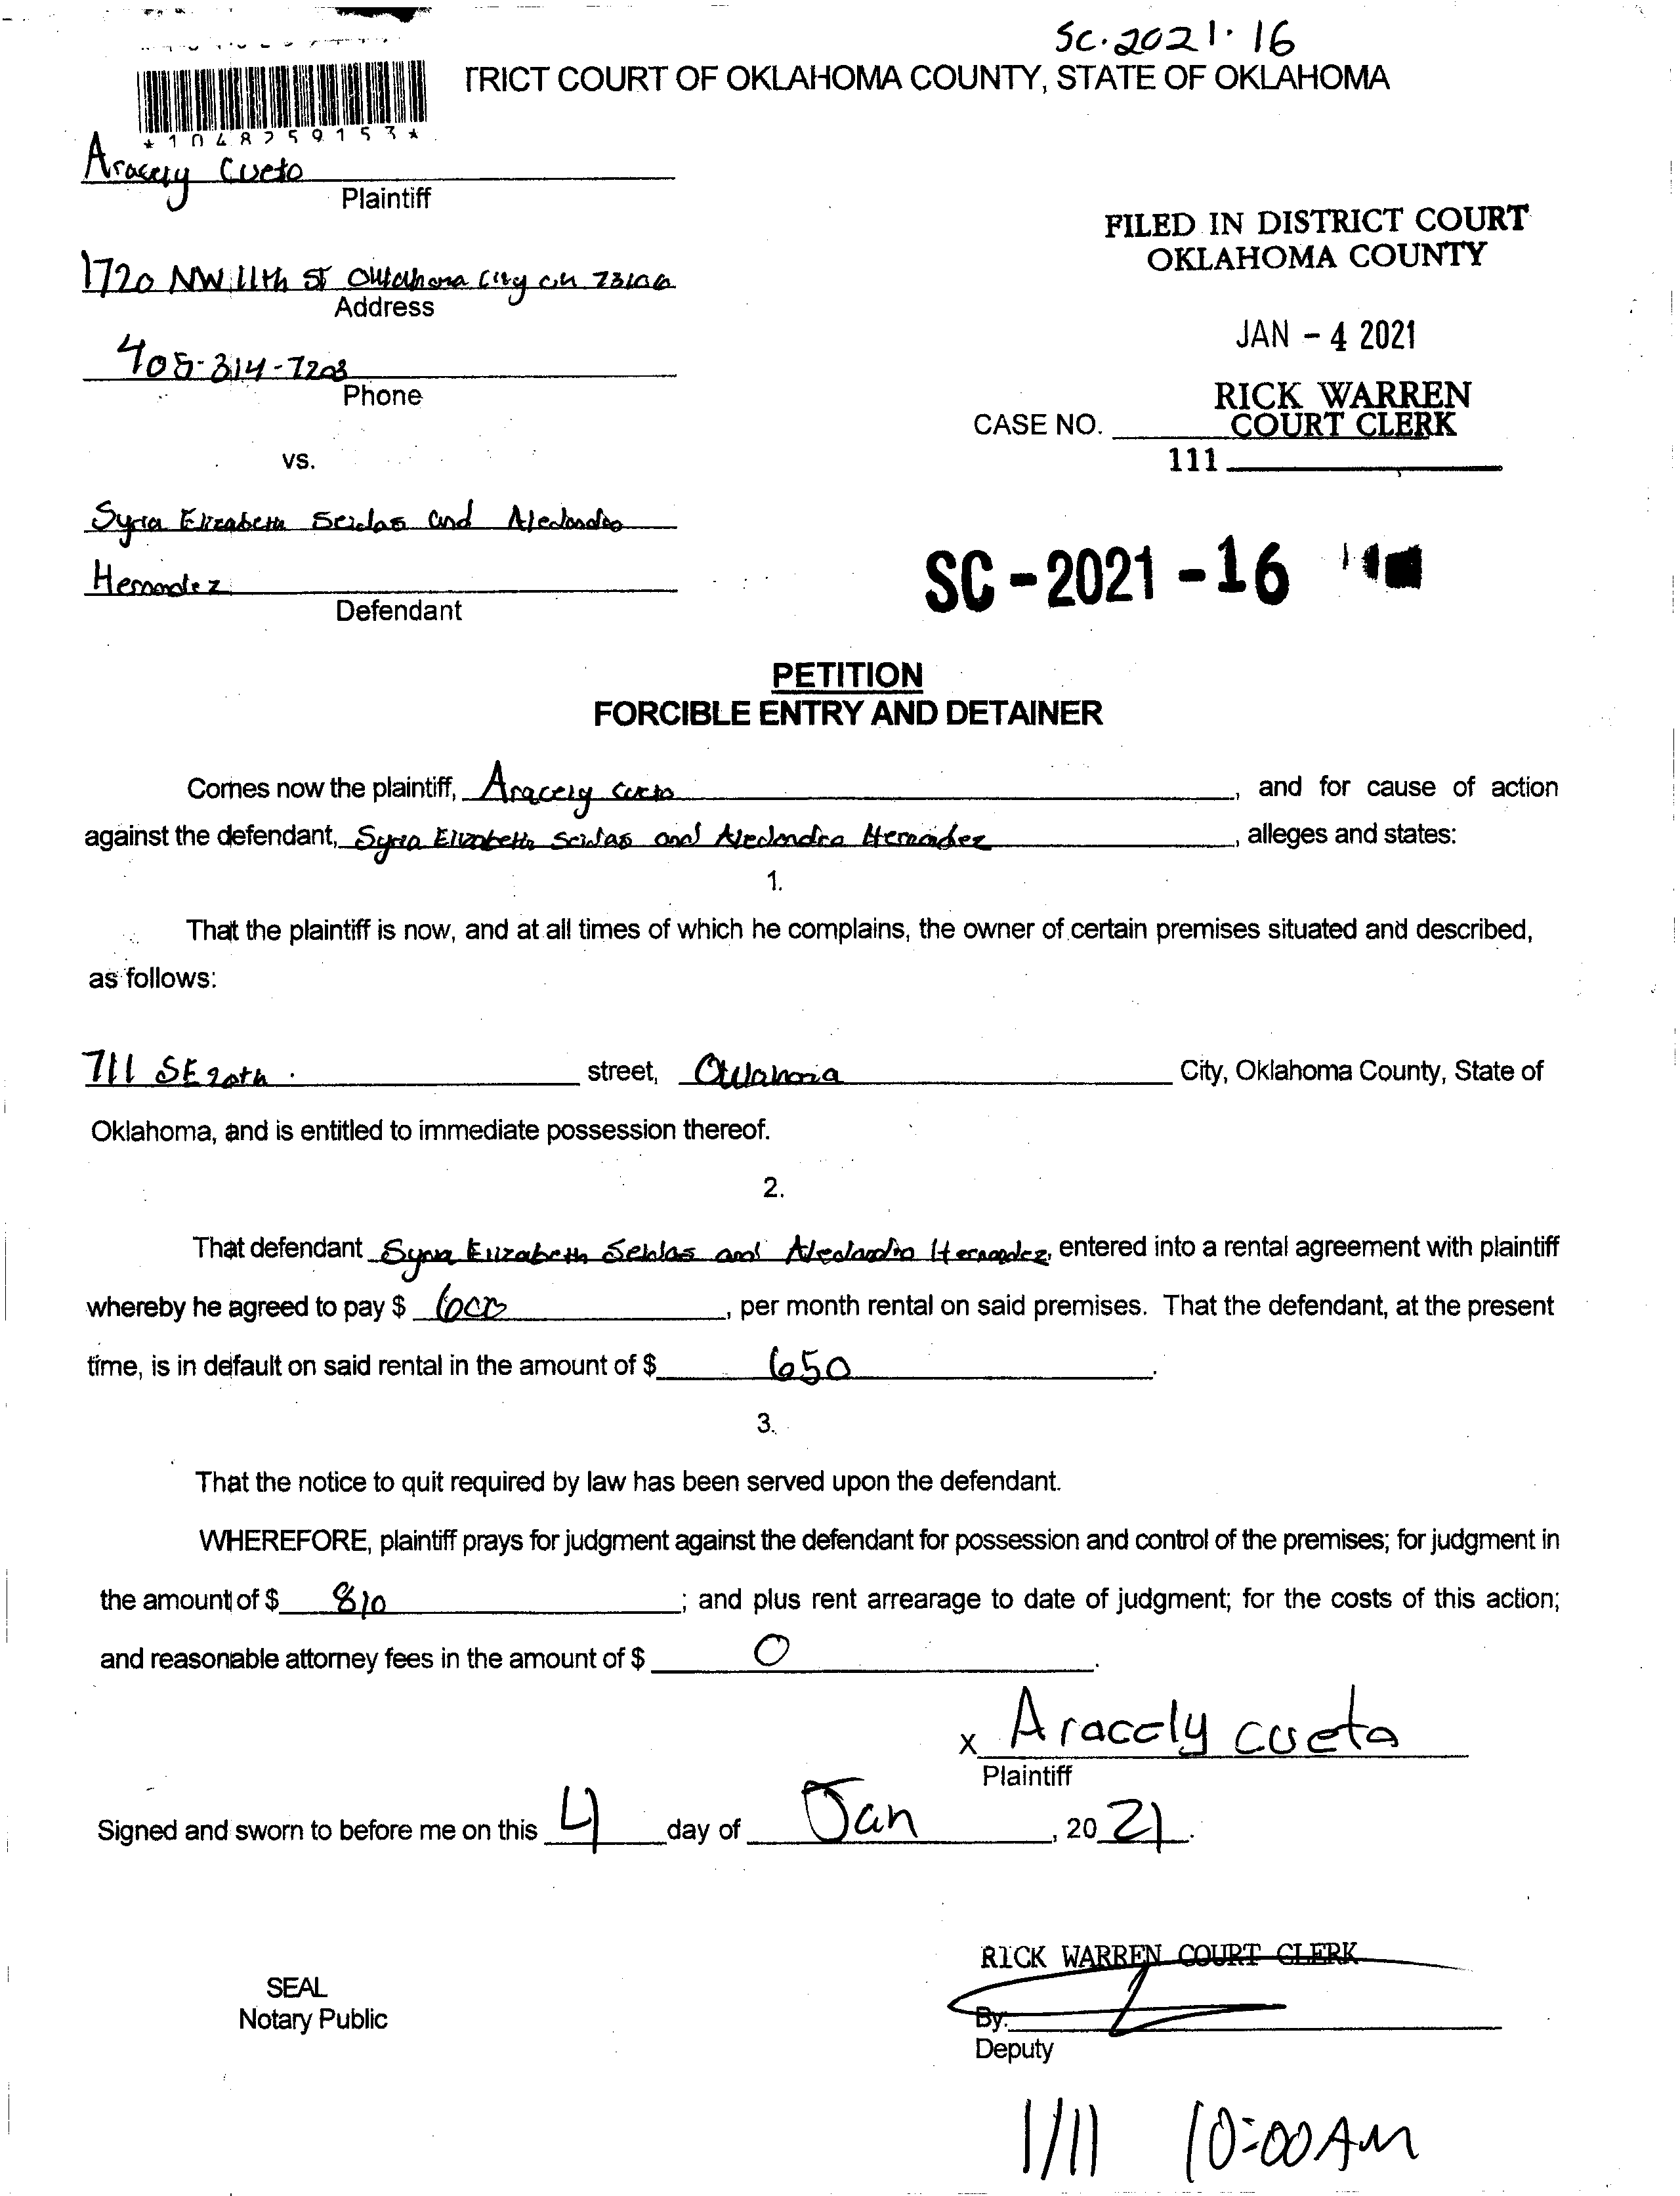 SC-2021-16
TRICT COURT OF OKLAHOMA COUNTY, STATE OF OKLAHOMA
*1048259153*
Aracely Cueto
Plaintiff
FILED IN DISTRICT COURT
OKLAHOMA COUNTY
1720 NW 11th ST Oklahoma City OK 73106
Address
JAN - 4 2021
405-314-7203
Phone
RICK WARREN
COURT CLERK
CASE NO.
111
vs.
Syria Elizabeth and Alejandro
Hernandez
Defendant
SC-2021-16
PETITION
FORCIBLE ENTRY AND DETAINER
Comes now the plaintiff, Aracely Cueto, and for cause of action
against the defendant, Syria Elizabeth and Alejandro Hernandez, alleges and states:
1.
That the plaintiff is now, and at all times of which he complains, the owner of certain premises situated and described,
as follows:
711 SE 20th street, Oklahoma City, Oklahoma County, State of
Oklahoma, and is entitled to immediate possession thereof.
2.
That defendant Syria Elizabeth and Alejandro Hernandez, entered into a rental agreement with plaintiff
whereby he agreed to pay $ 600, per month rental on said premises. That the defendant, at the present
time, is in default on said rental in the amount of $ 650.
3.
That the notice to quit required by law has been served upon the defendant.
WHEREFORE, plaintiff prays for judgment against the defendant for possession and control of the premises; for judgment in
the amount of $ 810; and plus rent arrearage to date of judgment; for the costs of this action;
and reasonable attorney fees in the amount of $ 0.
x Aracely cueto
Plaintiff
Signed and sworn to before me on this 4 day of Jan, 20 21.
RICK WARREN COURT CLERK
SEAL
Notary Public
By:
Deputy
1/11 10:00AM